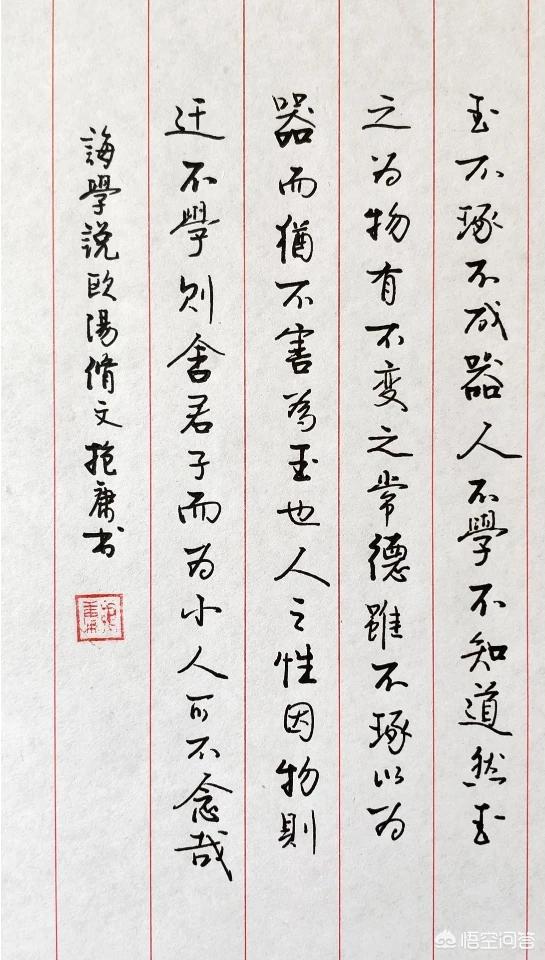 玉不琢不成器人不學不知道然玉
之为物有不变之常德雖不琢以为
器而猶不害為玉也人之性因物則
迁不學则舍君子而为小人可不念哉
誨學说欧陽脩文抱庸书
悟空问答